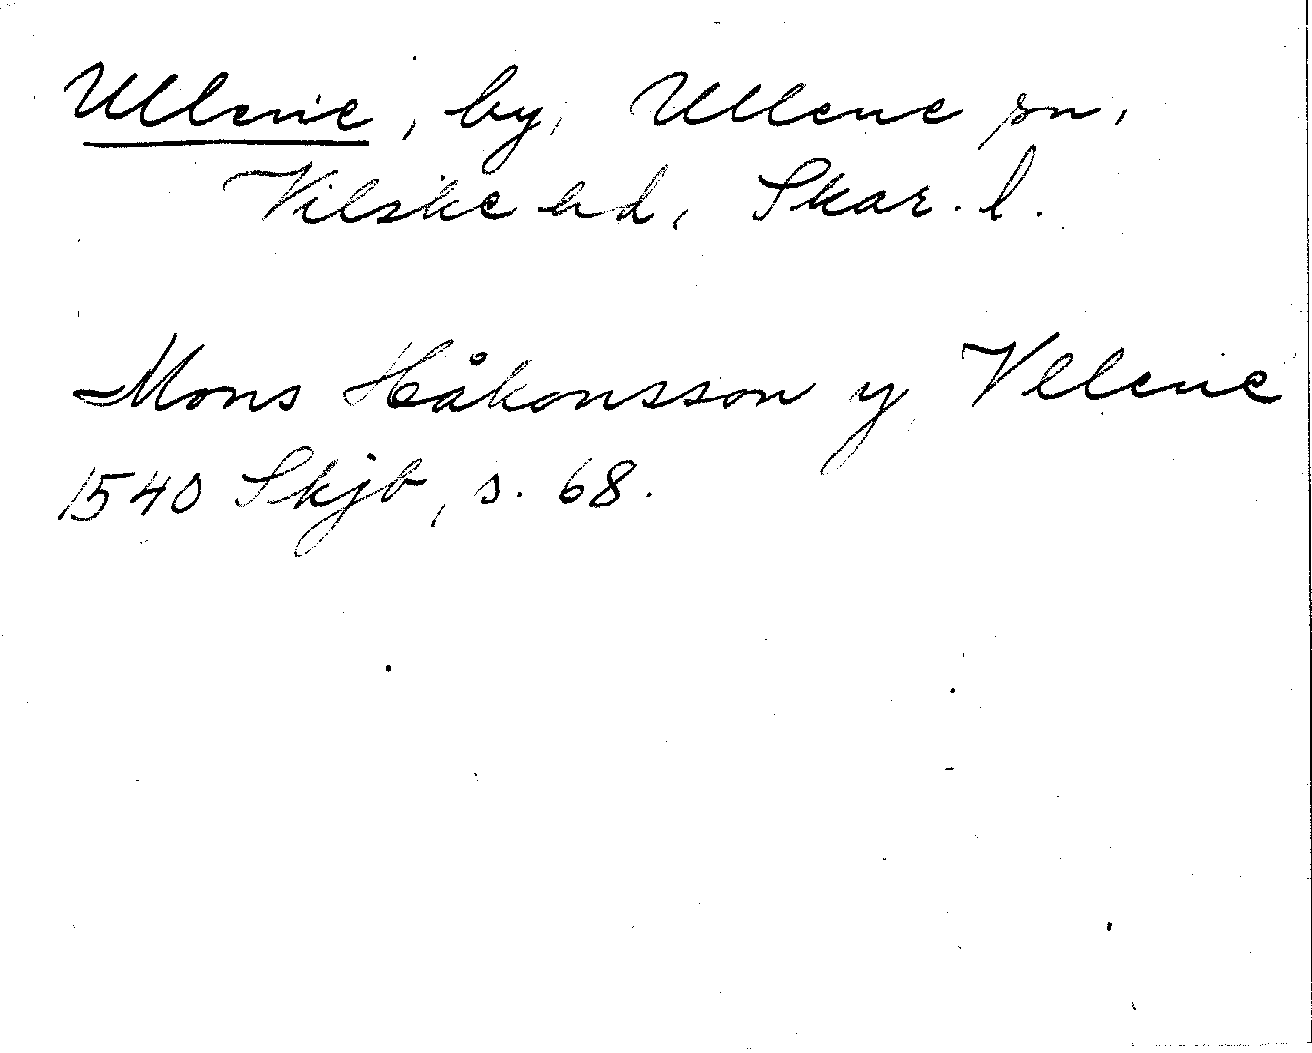 Ullene, by, Ullene sn,
Vilske hd, Skar. l.
Mons Håkonsson y Vllene
1540 Skjb, s. 68.